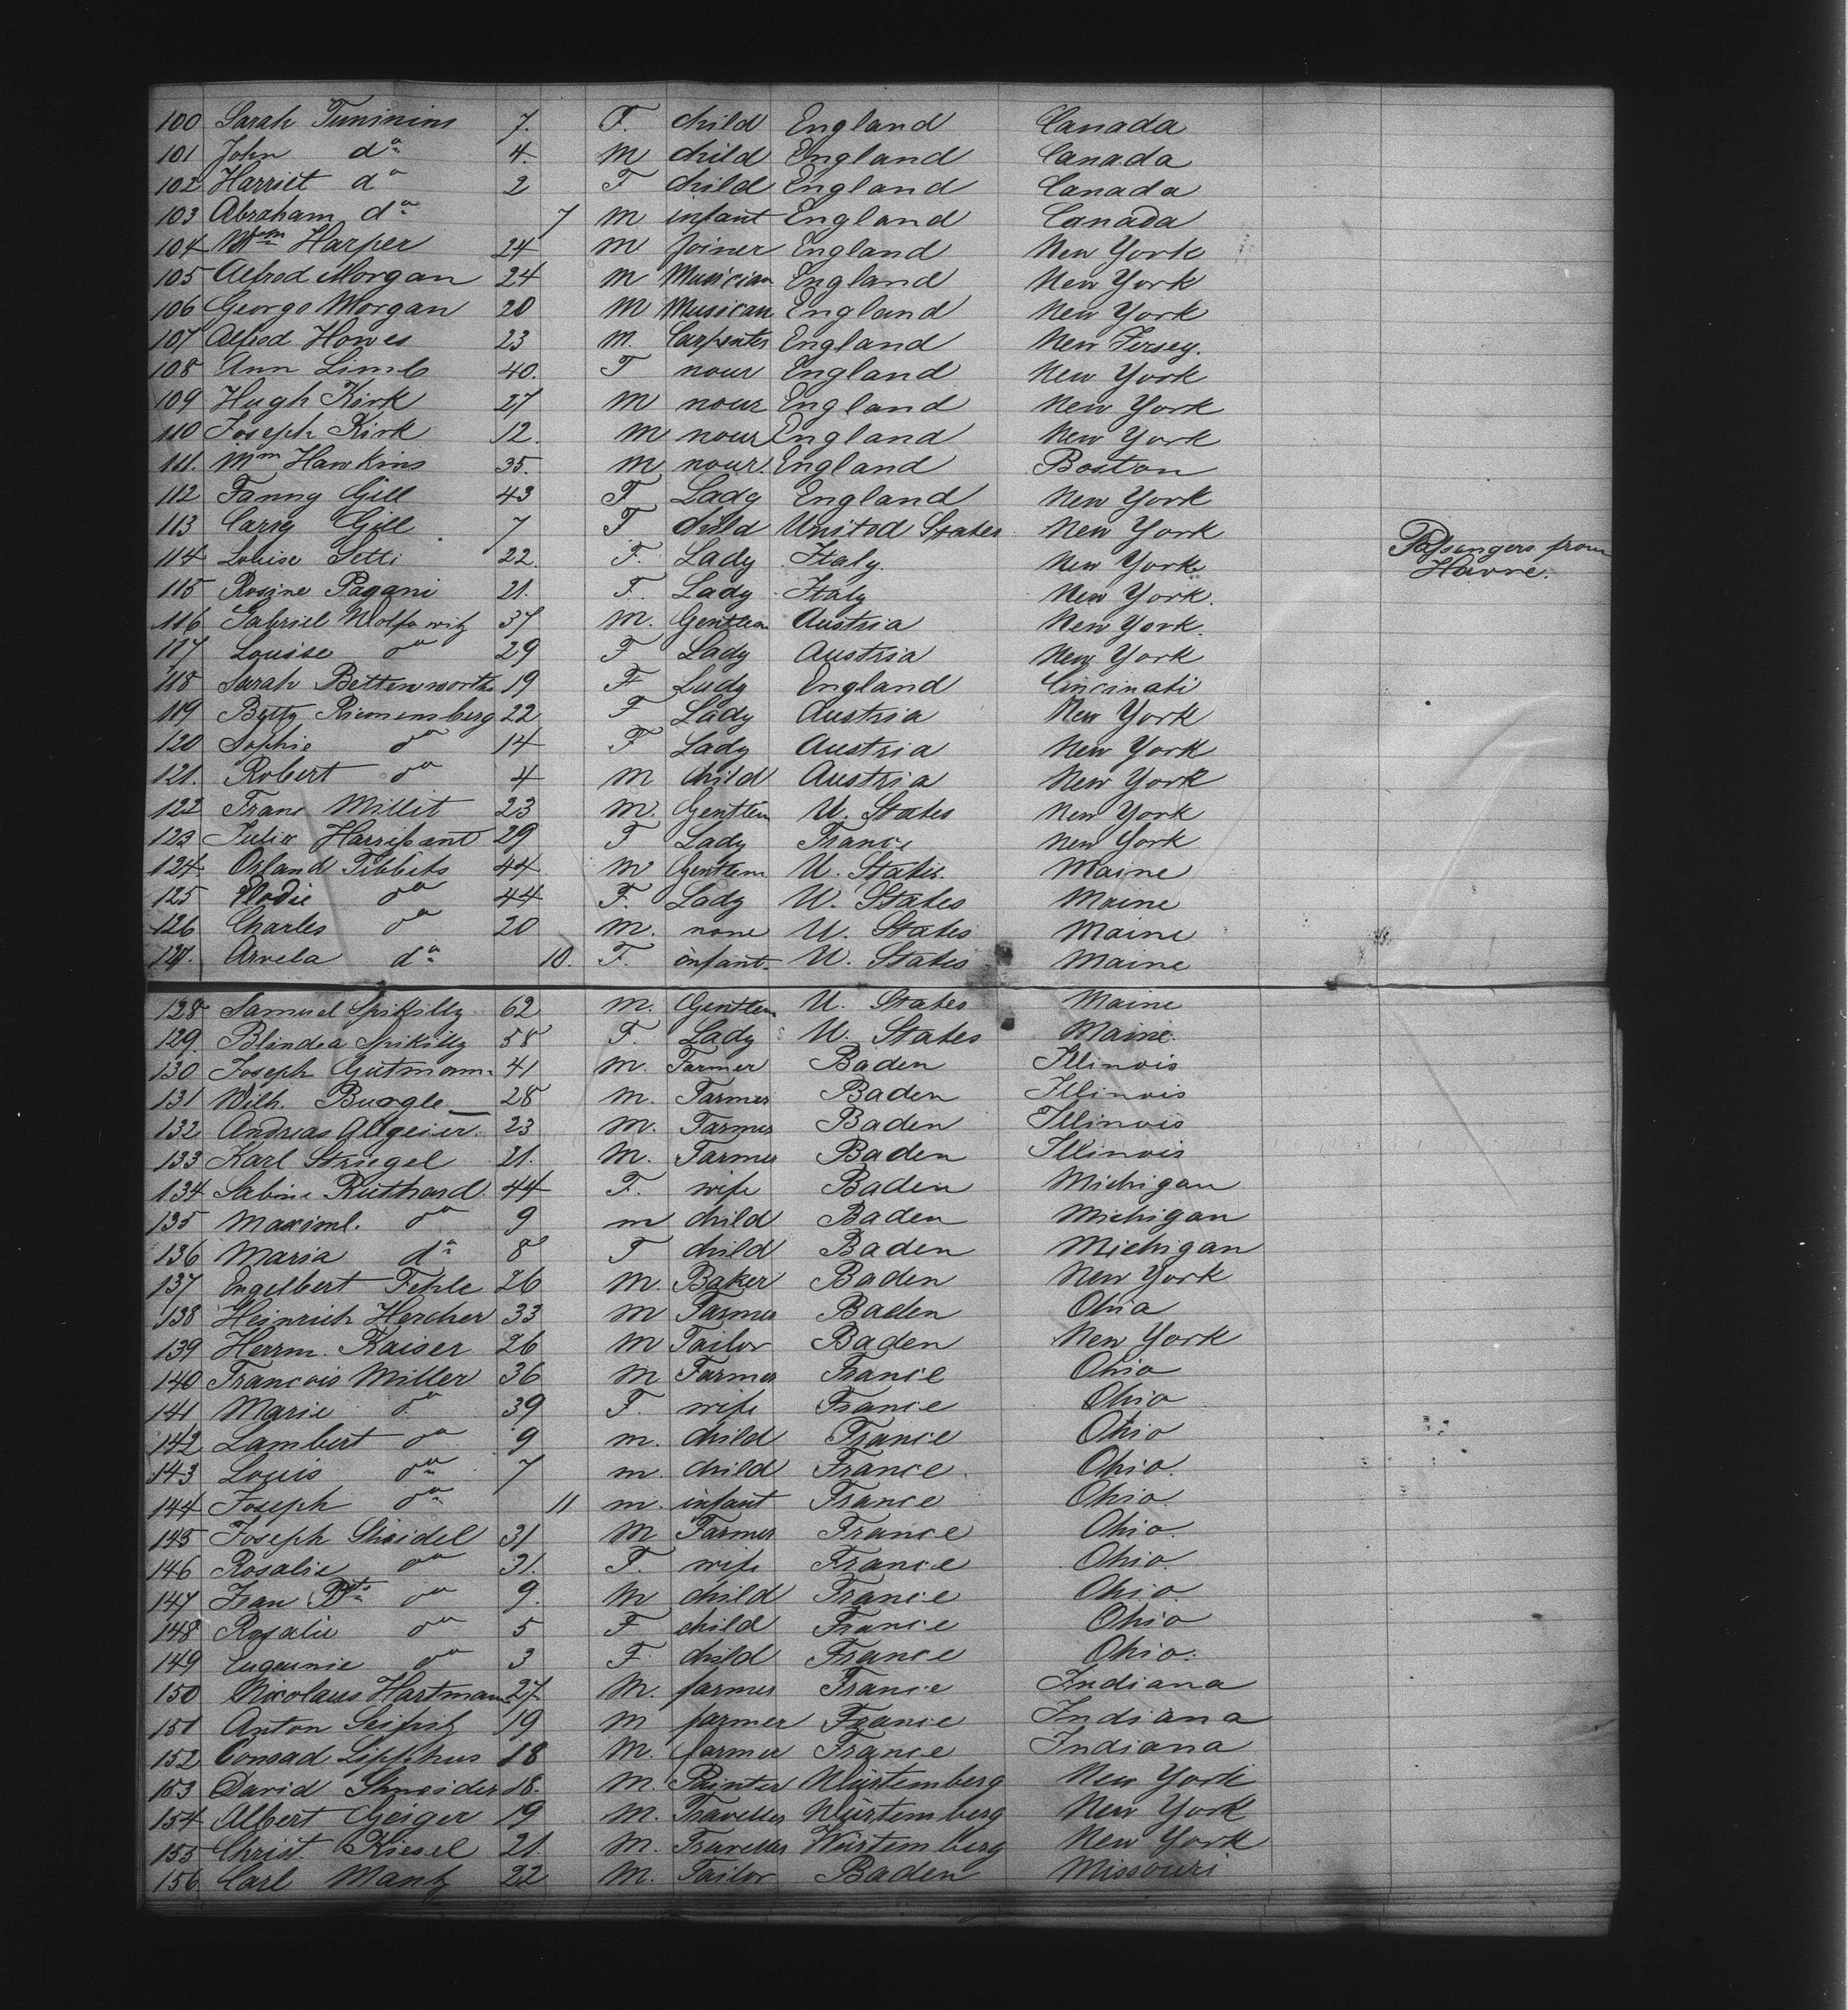 100 Sarah Timmins 7. F. child England Canada
101 John do 4. M child England Canada
102 Harriet do 2 F child England Canada
103 Abraham do 7 M infant England Canada
104 Wm Harper 24 M Joiner England New York
105 Alfred Morgan 24 M Musician England New York
106 George Morgan 20 M Musican England New York
107 Alfred Howes 23 M. Carpenter England New Jersey.
108 Ann Limb 40. F none England New York
109 Hugh Kirk 27 M none England New York
110 Joseph Kirk 12. M none England New York
111. Wm Hawkins 35. M none England Boston
112 Fanny Gill 43 F Lady England New York
113 Carry Gill 7 F child United States New York
Passengers from
Havre.
114 Louise Setti 22. F. Lady Italy. New York
115 Rosine Pagani 21. F. Lady Italy New York.
116 Gabriel Wolfowitz 37 M. Gentlem Austria New York.
117 Louise do 29 F Lady Austria New York
118 Sarah Bettenworth 19 F Lady England Cincinati
119 Betty 22 F Lady Austria New York
120 Sophie do 14 F Lady Austria New York
121. Robert do 4 M child Austria New York
122 Franc Millit 23 M. Gentlem U. States New York
123 Julia 29 F Lady France New York
124 Orland Tibbets 44 M Gentlem U. States. Maine
125 Elodie do 44 F. Lady U. States Maine
126 Charles do 20 M. none U. States Maine
127. Arvela do 10. F. infant U. States Maine
128 Samuel 62 M. Gentlem U. States Maine
129. Blindea 58 F. Lady U. States Maine.
130 Joseph Gutmann 41 M. Farmer Baden Illinois
131 Wilh. Burgle 28 M. Farmer Baden Illinois
132 Andreas Allgeier 23 M. Farmer Baden Illinois
133 Karl Striegel 21. M. Farmer Baden Illinois
134 Sabine Ruthard 44 F. wife Baden Michigan
135 Maximl. do 9 m child Baden Michigan
136 Maria do 8 F child Baden Michigan
137 Engelbert Fehle 26 M. Baker Baden New York
138 Heinrich Hercher 33 M Farmer Baden Ohia
139 Herrm. Kaiser 26 M Tailor Baden New York
140 Francois Miller 36 M Farmer France Ohio
141 Marie do 39 F. wife France Ohio
142 Lambert do 9 m. child France Ohio
143 Louis do 7 m. child France. Ohio.
144 Joseph do 11 m. infant France Ohio.
145 Joseph Sheidel 31 M Farmer France Ohio.
146 Rosalie do 31. F. wife France Ohio.
147 Jean Bte do 9. M child France Ohio.
148 Rosalie do 5 F child France Ohio
149 Eugennie do 3 F. child France Ohio.
150 Nicolaus Hartmann 27. M. farmer France Indiana
151 Anton Seifritz 19 M farmer France Indiana
152 Conrad Lipphus 18 M. farmer France Indiana
153 David Shneider 18. M. Painter Würtemberg New York
154 Albert Geiger 19 M. Traveller Würtemberg New York
155 Christ. Kiesel 21. M. Traveller Würtemberg New York
156 Carl Mantz 22 M. Tailor Baden Missouri